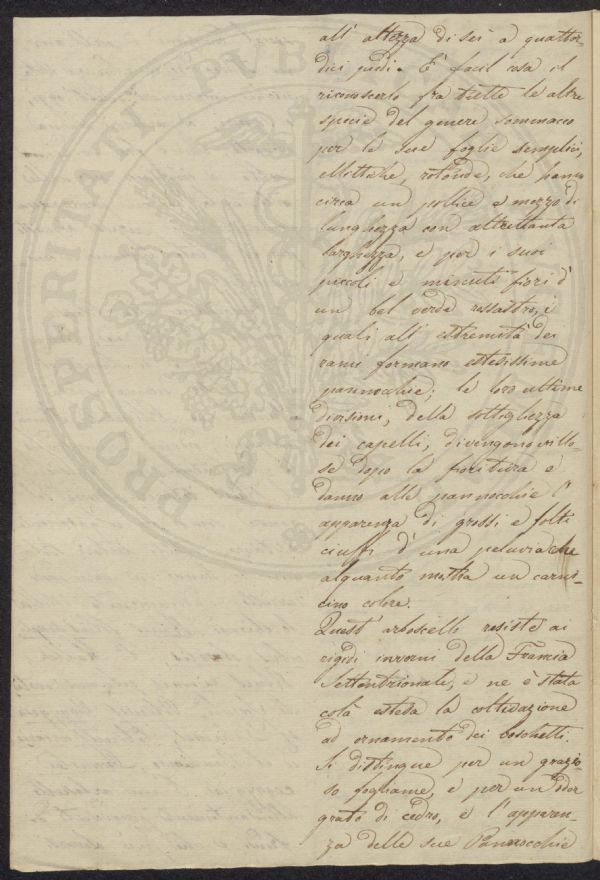 all' altezza di sei a quattor-
dici piedi. È facil cosa il
riconoscerlo fra tutte le altre
specie del genere sommacco
per le sue foglie semplici,
ellittiche, rotonde, che hanno
circa un pollice e mezzo di
lunghezza con altrettanta
larghezza, e per i suoi
piccoli e minuti fiori d'
un bel verde rossastro, i
quali all' estremità dei
rami formano estesissime
pannocchie; le loro ultime
divisioni, della sottigliezza
dei capelli, divengono villo-
se dopo la fioritura e
danno alle pannocchie l'
apparenza di grossi e folti
ciuffi d' una peluvia che
alquanto mostra un carni-
cino colore.
Quest' arboscello resiste ai
rigidi inverni della Francia
Settentrionale, e ne è stata
colà estesa la coltivazione
ad ornamento dei boschetti.
Si distingue per un grazio-
so fogliame, e per un odor
grato di cedro, e l' apparen-
za delle sue Pannocchie
PROSPERITATI PVBL